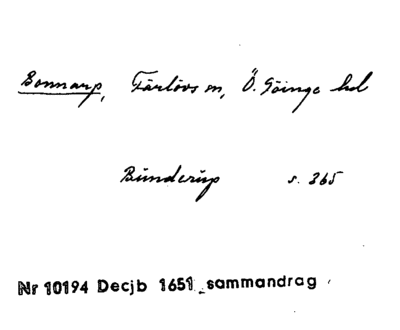 Bonnarp, Färlövs sn, Ö. Göinge hd
Bünderup s. 365
Nr 10194 Decjb 1651 sammandrag